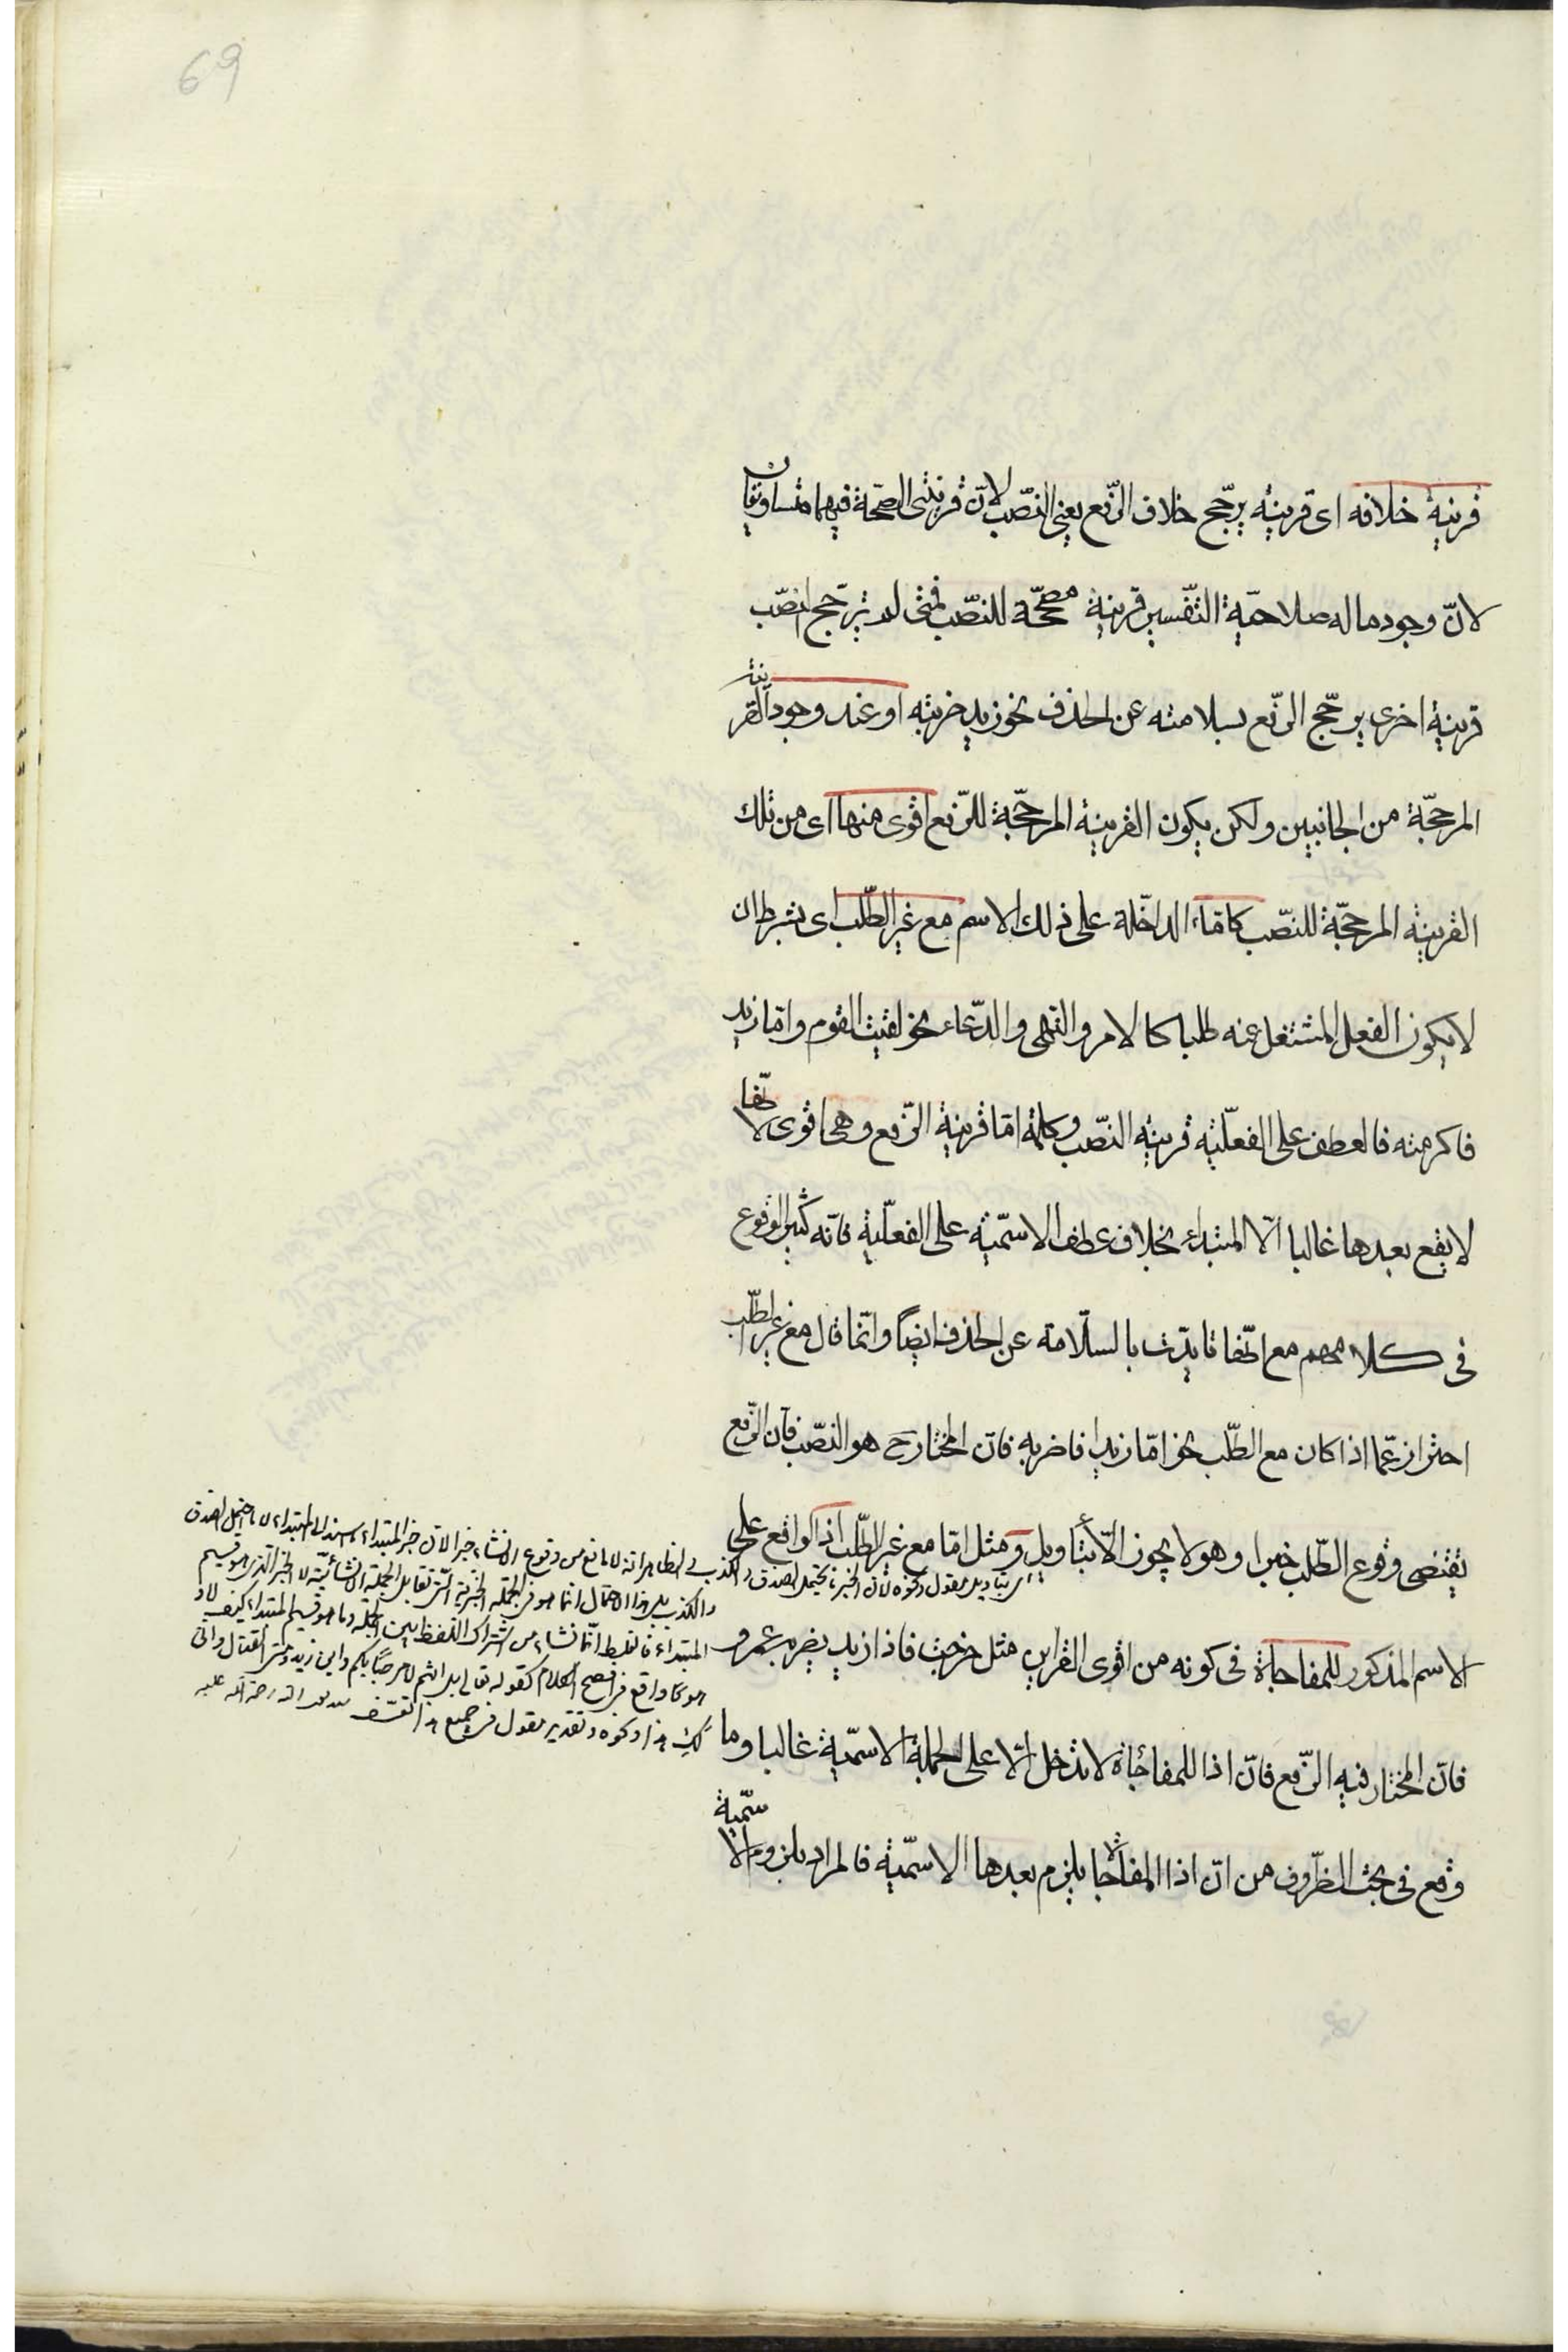 69
قرينة خلافه اى قرينة يرجّح خلاف الرّفع يعنى النّصب لانّ قرينتى الصّحّة فيهما متساويتان
لانّ وجود ماله صلاحيّة التّفسير قرينة مصحّحة للنّصب فمتى لم يترجّح النّصب
قرينة اخرى يرجّح الرّفع بسلامته عن الحذف نحو زيد ضربته او عند وجود القرينة
المرجّحة من الجانبين ولكن يكون القرينة المرجّحة للرّفع اقوى منها اى من تلك
القرينة المرجّحة للنّصب كامّا الداخلة على ذلك الاسم مع غير الطّلب اى بشرط ان
لا يكون الفعل المشتغل عنه طلبا كالامر والنّهى والدّعاء نحو لقيت القوم وامّا زيد
فاكرمته فالعطف على الفعليّة قرينة النّصب وكلمة امّا قرينة الرّفع وهى اقوى لانّها
لا يقع بعدها غالبا الّا المبتداء بخلاف عطف الاسميّة على الفعليّة فانّه كثير الوقوع
فى كلامهم مع انّها تايّدت بالسّلامة عن الحذف ايضاً وانّما قال مع غير الطّلب
احترازعمّا اذا كان مع الطّلب نحو امّا زيدا فاضربه فانّ المختار ح هو النّصب فانّ الرّفع
يقتضى وقوع الطّلب خبرا وهو لا يجوز الّا بتأويل ومثل امّا مع غير الطّلب اذا الواقع على
الاسم المذكور للمفاجاة فى كونه من اقوى القراين مثل خرجت فاذا زيد يضربه عمرو
فانّ المختار فيه الرّفع فانّ اذا للمفاجاة لا تدخل الّا على الجملة الاسميّة غالبا وما
وقع فى بحث الظّروف من انّ اذا المفاجاة يلزم بعدها الاسميّة فالمراد بلزوم الاسميّة
اى بتاويل مقول ونحوه لان الخبر ما يحتمل الصدق والكذب الظاهر انه لا مانع من وقوع الانشاء خبرا لان خبر المبتداء ما يسند الى المبتداء لا ما يحتمل الصدق
والكذب بل هذا الاحتمال انما هو فى الجملة الخبرية التى تقابل الجملة الانشائية لا الخبر الذى هو قسيم
المبتداء فالغلط انما نشاء من اشتراك اللفظ بين الجملة وما هو قسيم المبتداء كيف لا و
هو مما واقع فى افصح الكلام كقوله تعالى بل انتم لا مرحبا بكم واين زيد ومتى القتال وانى
لك هذا ونحوه وتقدير مقول فى جميع هذا تعسف رحمة الله عليه